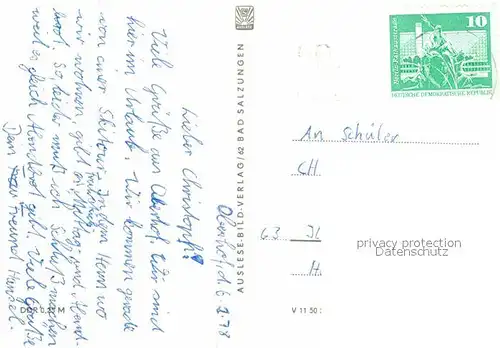 Oberhof, d. 6.2.78
Lieber Christoph!
Viele Grüße aus Oberhof. Wir sind
hier im Urlaub. Wir kommen gerade
von einer Skitour. In dem Heim wo
wir wohnen, gibt es Frühstück,
Mittag und Abend-
brot. So leider muß ich Schluß machen
weil es gleich Abendbrot gibt. Viele Grüße
Dein Freund Hansel.
DDR 0,25 M
AUSLESE-BILD-VERLAG/62 BAD SALZUNGEN
V 11 50
10
DEUTSCHE DEMOKRATISCHE REPUBLIK
An Schüler
CH
63 Jl
H
privacy protection
Datenschutz